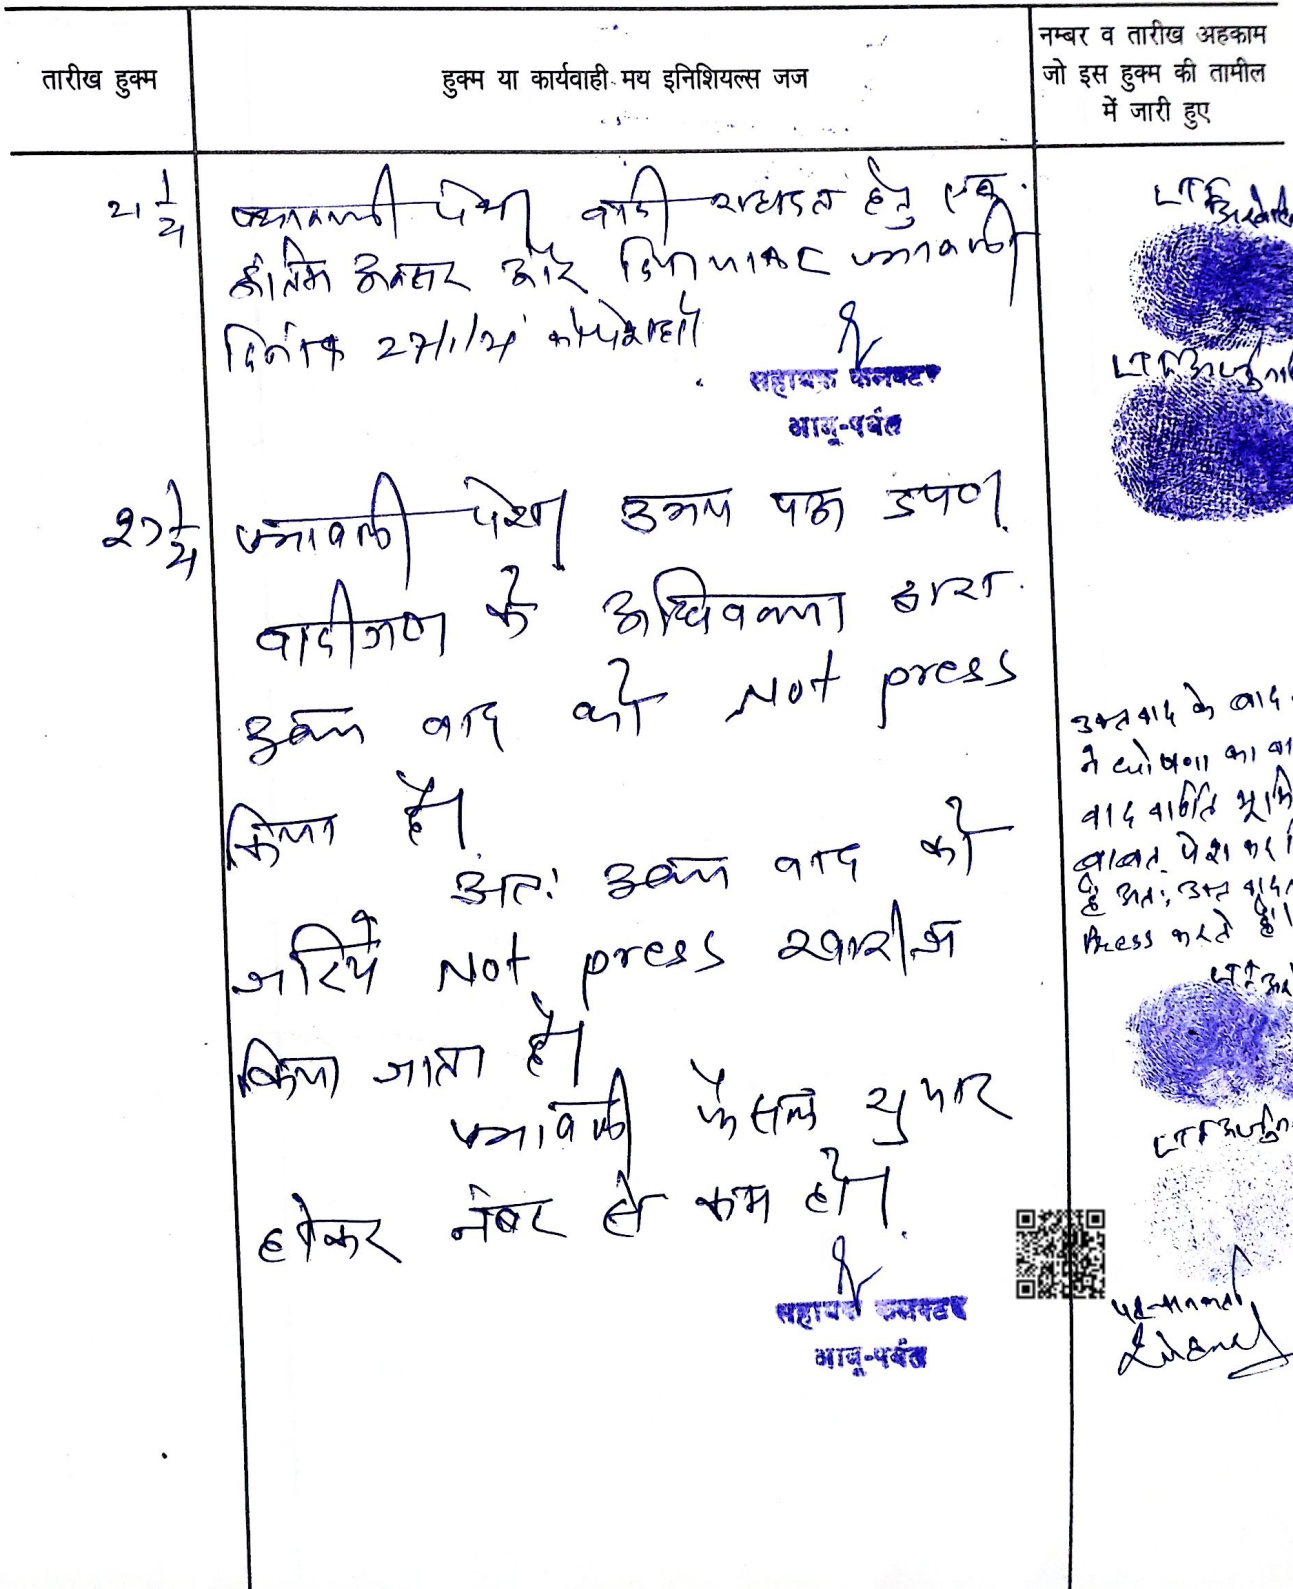 तारीख हुक्म
हुक्म या कार्यवाही मय इनिशियल्स जज
नम्बर व तारीख अहकाम
जो इस हुक्म की तामील
में जारी हुए
21/1/21
पत्रावली पेश। वादी शहादत हेतु एक
अंतिम अवसर और दिया जाकर पत्रावली
दिनांक 27/1/21 को पेश हो।
सहायक कलक्टर
आबू-पर्वत
27/1/21
पत्रावली पेश। उभय पक्ष उप०।
वादीगण के अधिवक्ता द्वारा
उक्त वाद को Not press
किया है।
अतः उक्त वाद को
जरिये Not press खारीज
किया जाता है।
पत्रावली फैसल शुमार
होकर नंबर से कम हो।
सहायक कलक्टर
आबू-पर्वत
उक्त वाद के वाद
ने घोषणा का वा
वाद वर्णित भूमि
बाबत पेश कर
है अतः उक्त वाद
Press करते है।